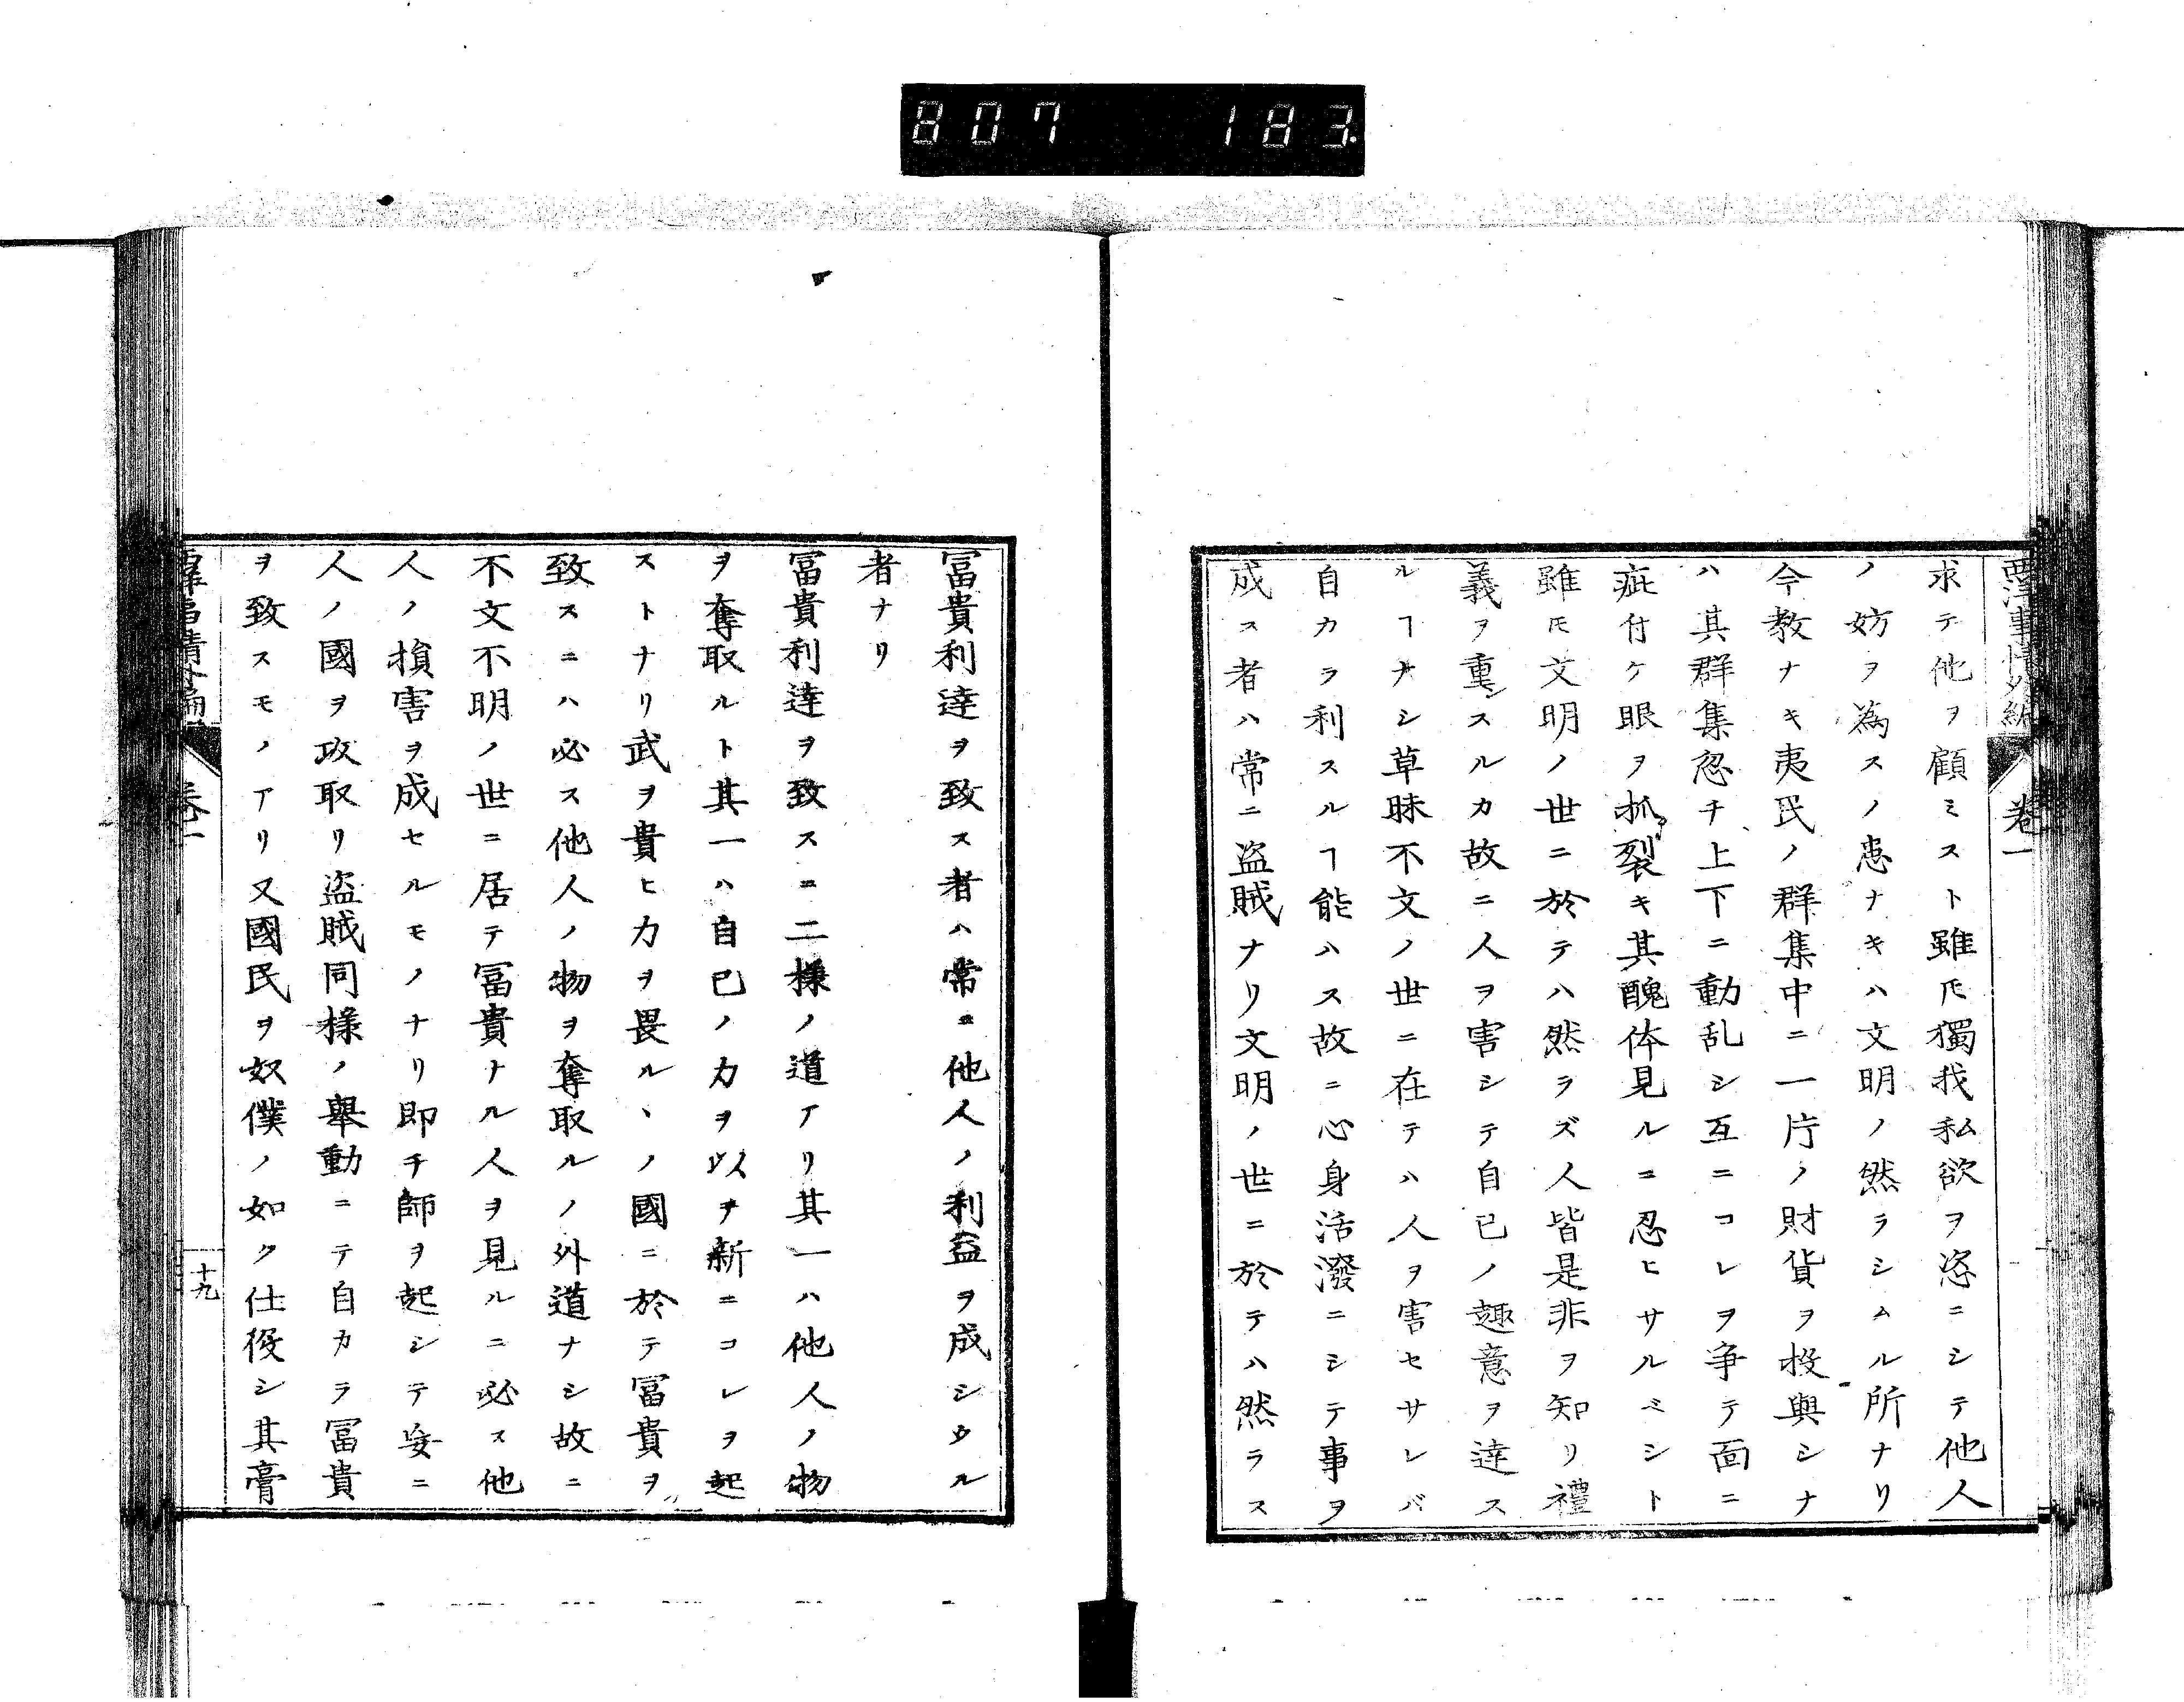 807 183
西洋事情外編 卷一
求テ他ヲ顧ミスト雖𪜈獨我私欲ヲ恣ニシテ他人
ノ妨ヲ為スノ患ナキハ文明ノ然ラシムル所ナリ
今教ナキ夷民ノ群集中ニ一片ノ財貨ヲ投與シナ
ハ其群集忽チ上下ニ動乱シ互ニコレヲ争テ面ニ
疵付ケ眼ヲ抓裂キ其醜体見ルニ忍ヒサルベシト
雖𪜈文明ノ世ニ於テハ然ラズ人皆是非ヲ知リ禮
義ヲ重シスルカ故ニ人ヲ害シテ自己ノ趣意ヲ達ス
ルヿナシ草昧不文ノ世ニ在テハ人ヲ害セサレバ
自カラ利スルヿ能ハス故ニ心身活潑ニシテ事ヲ
成ス者ハ常ニ盗賊ナリ文明ノ世ニ於テハ然ラス
冨貴利達ヲ致ス者ハ常ニ他人ノ利益ヲ成シウル
者ナリ
冨貴利達ヲ致スニ二様ノ道アリ其一ハ他人ノ物
ヲ奪取ルト其一ハ自己ノ力ヲ以テ新ニコレヲ起
ストナリ武ヲ貴ヒ力ヲ畏ルヽノ國ニ於テ冨貴ヲ
致スニハ必ス他人ノ物ヲ奪取ルノ外道ナシ故ニ
不文不明ノ世ニ居テ冨貴ナル人ヲ見ルニ必ス他
人ノ損害ヲ成セルモノナリ即チ師ヲ起シテ妄ニ
人ノ國ヲ攻取リ盗賊同様ノ舉動ニテ自カラ冨貴
ヲ致スモノアリ又國民ヲ奴僕ノ如ク仕役シ其膏
卷一
十九